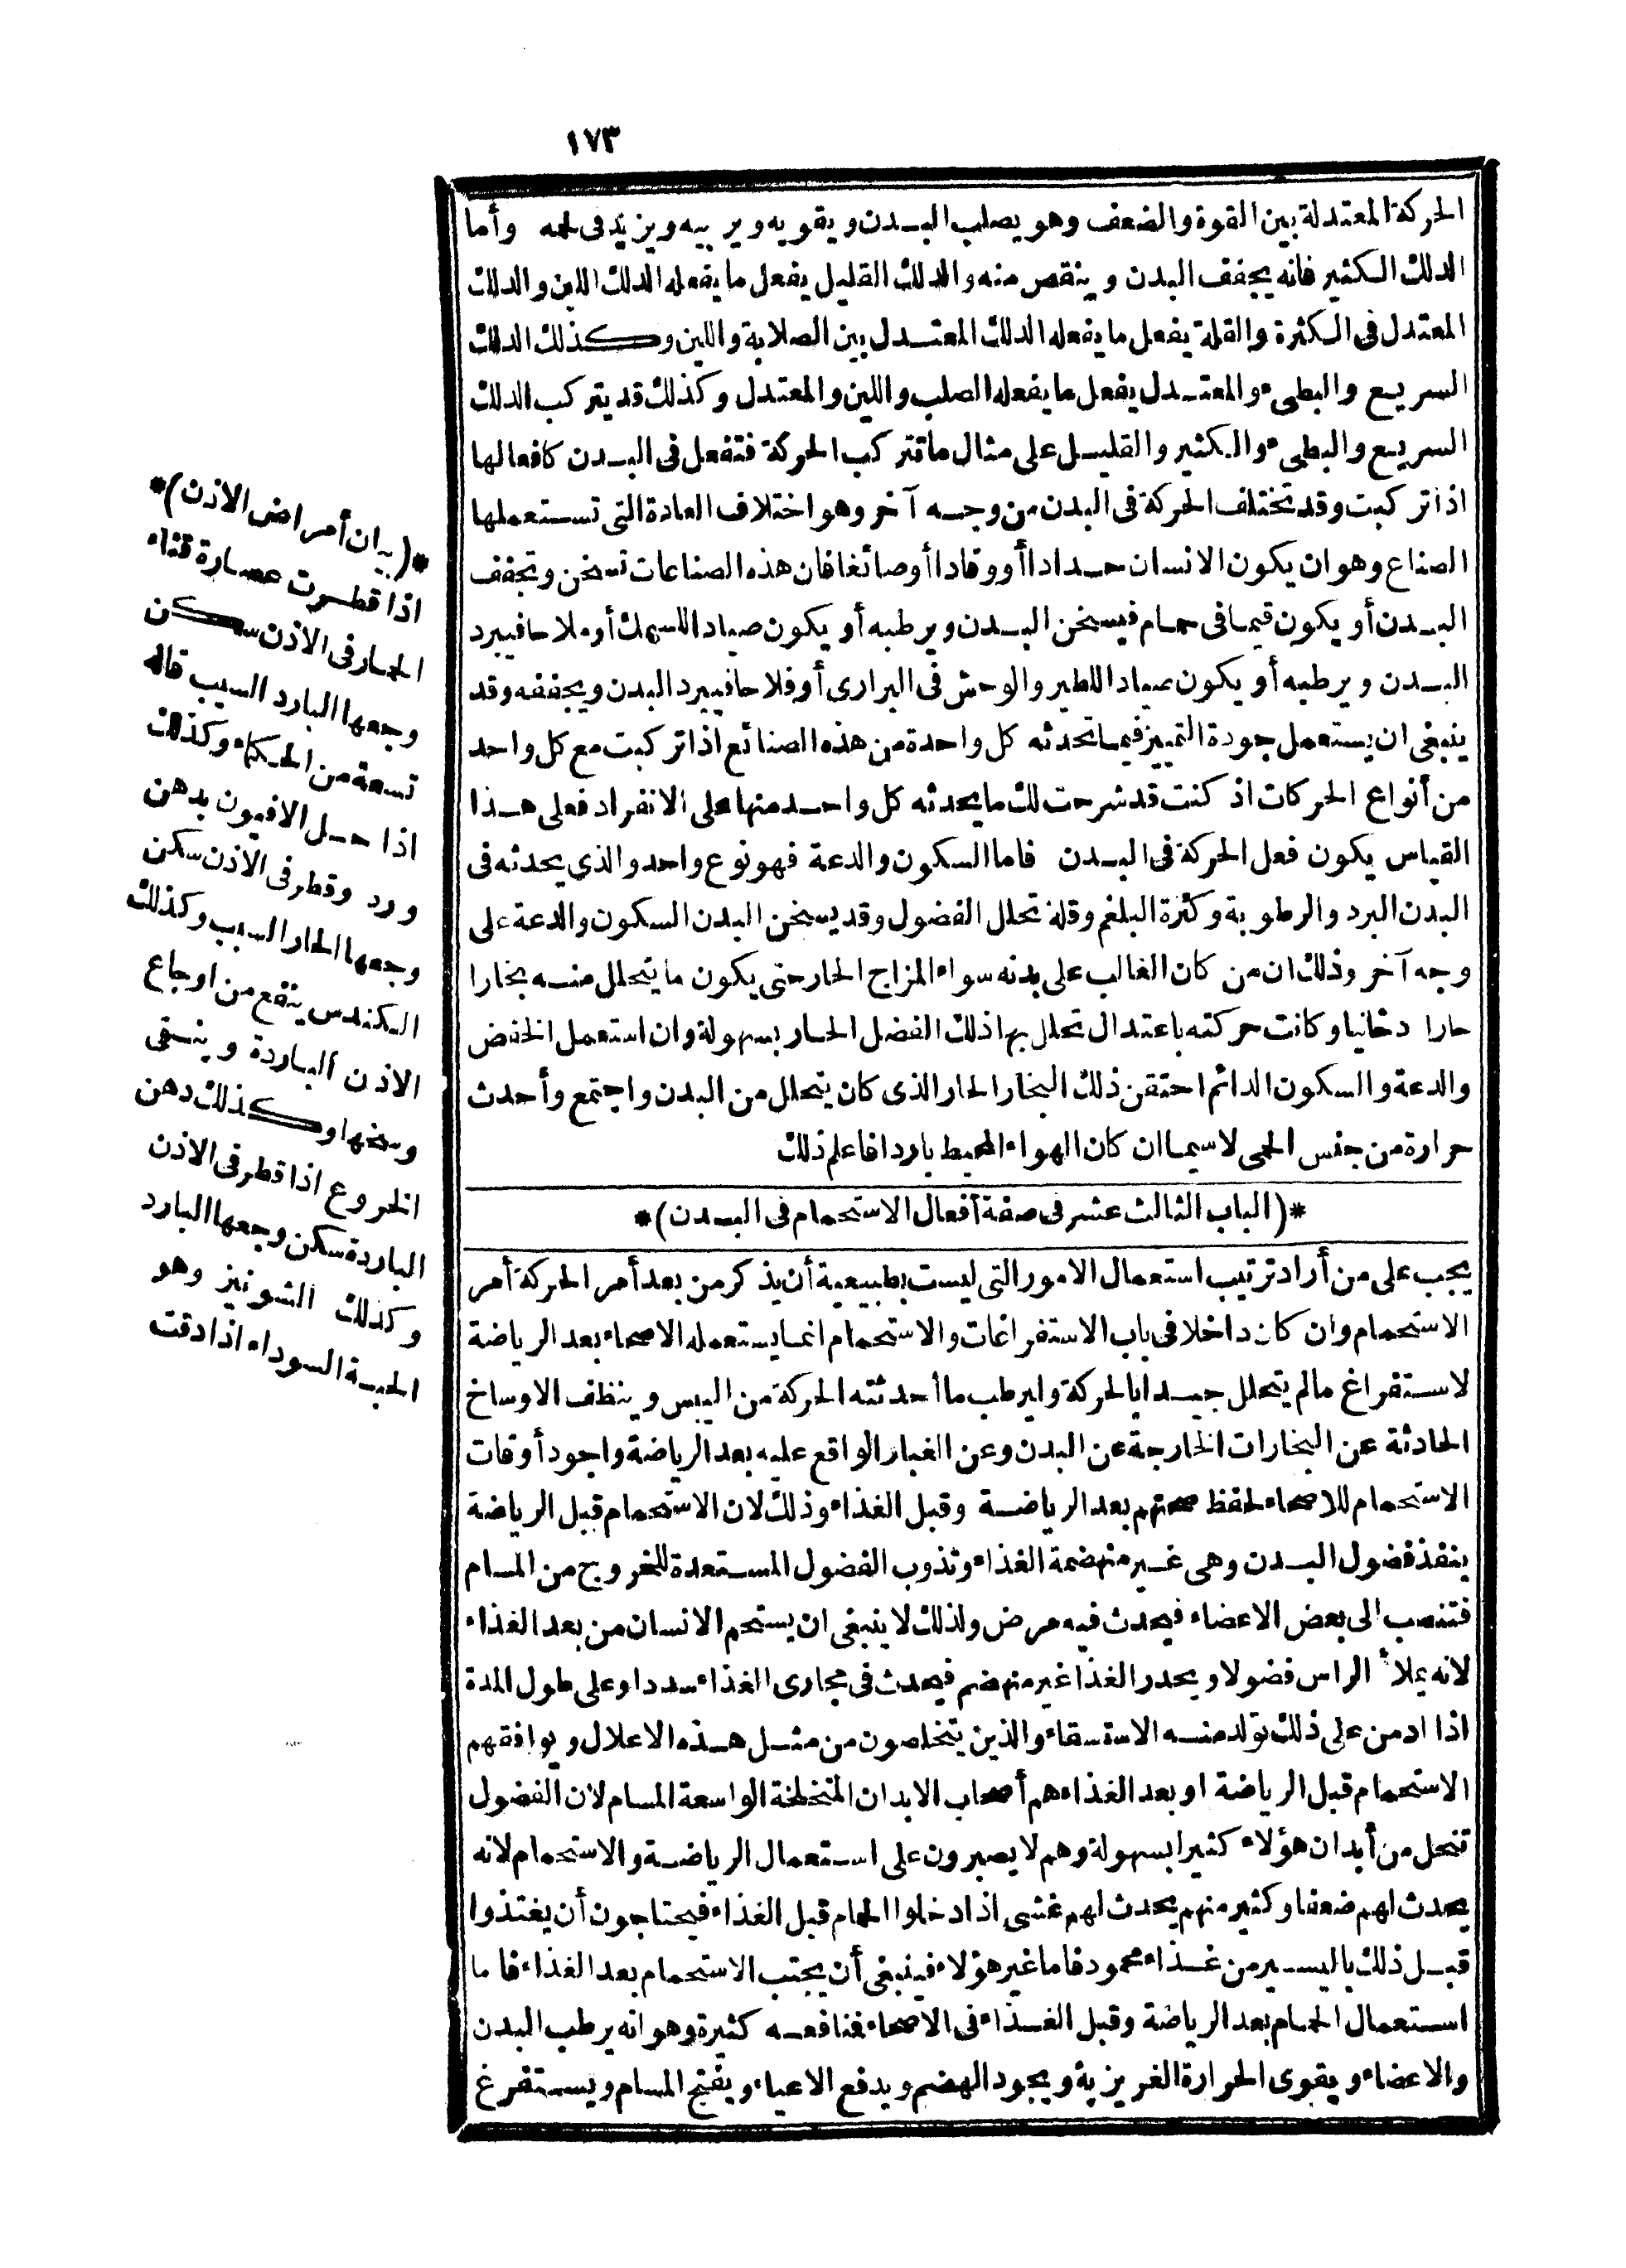 ١٧٣
الحركة المعتدلة بين القوة والضعف وهو يصلب البدن ويقويه ويربيه ويزيد فى لحمه وأما
الدلك الكثير فانه يجفف البدن وينقص منه والدلك القليل يفعل ما يفعله الدلك اللين والدلك
المعتدل فى الكثرة والقلة يفعل ما يفعله الدلك المعتدل بين الصلابة واللين وكذلك الدلك
السريع والبطىء والمعتدل يفعل ما يفعله الصلب واللين والمعتدل وكذلك قد يتركب الدلك
السريع والبطىء والكثير والقليل على مثال ما تتركب الحركة فتفعل فى البدن كافعالها
اذا تركبت وقد تختلف الحركة فى البدن من وجه آخر وهو اختلاف العادة التى تستعملها
الصناع وهو ان يكون الانسان حدادا أو وقادا أو صائغا فان هذه الصناعات تسخن وتجفف
البدن أو يكون قيما فى حمام فيسخن البدن ويرطبه أو يكون صيادا للسمك أو ملاحا فيبرد
البدن ويرطبه أو يكون صيادا للطير والوحش فى البرارى أو فلاحا فيبرد البدن ويجففه وقد
ينبغى ان يستعمل جودة التمييز فيما تحدثه كل واحدة من هذه الصنائع اذا تركبت مع كل واحد
من أنواع الحركات اذ كنت قد شرحت لك ما يحدثه كل واحد منها على الانفراد فعلى هذا
القياس يكون فعل الحركة فى البدن فاما السكون والدعة فهو نوع واحد والذي يحدثه فى
البدن البرد والرطوبة وكثرة البلغم وقلة تحلل الفضول وقد يسخن البدن السكون والدعة على
وجه آخر وذلك ان من كان الغالب على بدنه سواء المزاج الحار حتى يكون ما يتحلل منه بخارا
حارا دخانيا وكانت حركته باعتدال تحلل بها ذلك الفضل الحار بسهولة وان استعمل الخفض
والدعة والسكون الدائم احتقن ذلك البخار الحار الذى كان يتحلل من البدن واجتمع وأحدث
حرارة من جنس الحمى لاسيما ان كان الهواء المحيط باردا فاعلم ذلك
*(الباب الثالث عشر فى صفة أفعال الاستحمام فى البدن)*
يجب على من أراد ترتيب استعمال الامور التى ليست بطبيعية أن يذكر من بعد أمر الحركة أمر
الاستحمام وان كان داخلا فى باب الاستفراغات والاستحمام انما يستعمله الاصحاء بعد الرياضة
لاستفراغ مالم يتحلل جيدا بالحركة وليرطب ما أحدثته الحركة من اليبس وينظف الاوساخ
الحادثة عن البخارات الخارجة عن البدن وعن الغبار الواقع عليه بعد الرياضة واجود أوقات
الاستحمام للاصحاء لحفظ صحتهم بعد الرياضة وقبل الغذاء وذلك لان الاستحمام قبل الرياضة
ينفذ فضول البدن وهى غير منهضمة الغذاء وتذوب الفضول المستعدة للخروج من المسام
فتنصب الى بعض الاعضاء فيحدث فيه مرض ولذلك لا ينبغى ان يستحم الانسان من بعد الغذاء
لانه يملأ الراس فضولا ويحدر الغذا غير منهضم فيحدث فى مجارى الغذاء سددا وعلى طول المدة
اذا ادمن على ذلك تولد منه الاستسقاء والذين يتخلصون من مثل هذه الاعلال ويوافقهم
الاستحمام قبل الرياضة او بعد الغذاء هم أصحاب الابدان المتخلخلة الواسعة المسام لان الفضول
تنحل من أبدان هؤلاء كثيرا بسهولة وهم لا يصبرون على استعمال الرياضة والاستحمام لانه
يحدث لهم ضعفا وكثير منهم يحدث لهم غشى اذا دخلوا الحمام قبل الغذاء فيحتاجون أن يغتذوا
قبل ذلك باليسير من غذاء محمود فاما غير هؤلاء فينبغى أن يجتنب الاستحمام بعد الغذاء فاما
استعمال الحمام بعد الرياضة وقبل الغذاء فى الاصحاء فمنافعه كثيرة وهو انه يرطب البدن
والاعضاء ويقوى الحرارة الغريزية ويجود الهضم ويدفع الاعياء ويفتح المسام ويستفرغ
*(بيان أمراض الاذن)*
اذا قطرت عصارة قثاء
الحمار فى الاذن سكن
وجعها البارد السبب قاله
تسعة من الحكماء وكذلك
اذا حل الافيون بدهن
ورد وقطر فى الاذن سكن
وجعها الحار السبب وكذلك
الكندس ينفع من اوجاع
الاذن الباردة وينقى
وسخها وكذلك دهن
الخروع اذا قطر فى الاذن
الباردة سكن وجعها البارد
وكذلك الشونيز وهو
الحبة السوداء اذا دقت